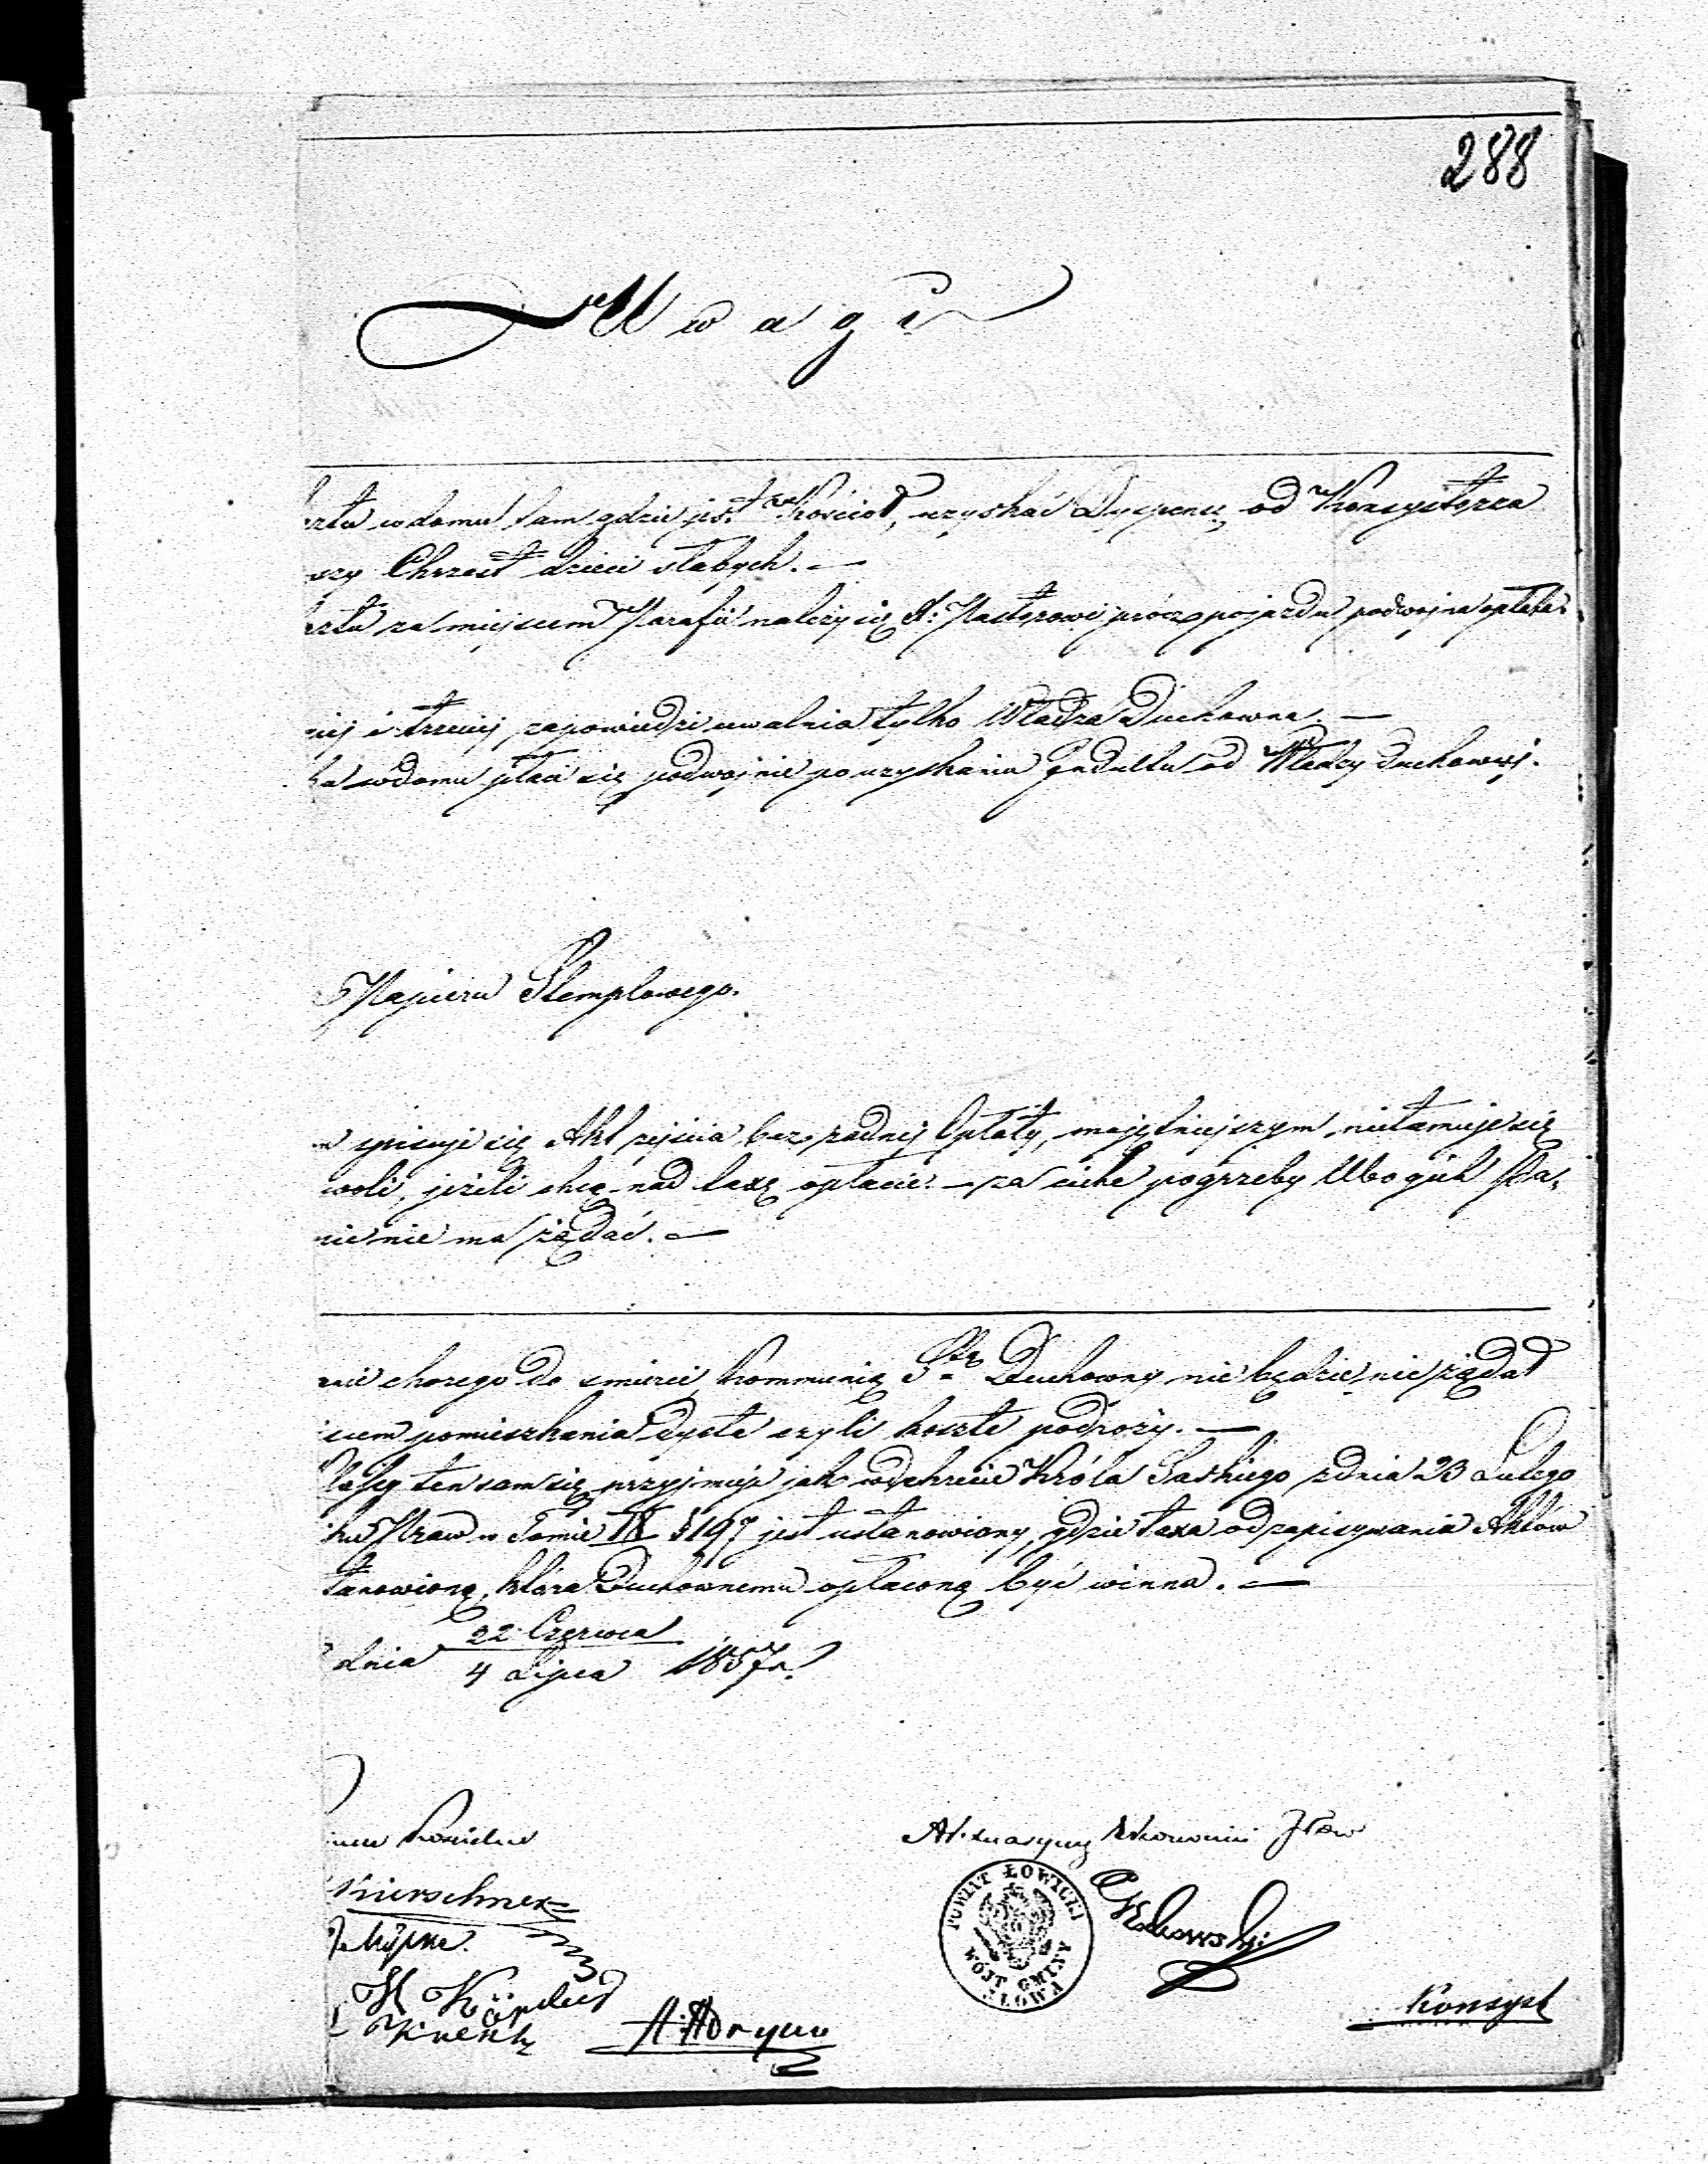 288
Uwagi
rztu w domu tam gdzie jest Kościoł, uzyskać Dyspensę od Konsystorza
szy Chrzest dzieci słabych. —
rztu za miejscem Parafii należy się X: Pastorowi prócz pojazdu podwojna opłata
niej i trzeciej zapowiedzi uwalnia tylko Władza Duchowna. —
w domu płaci się podwojnie po uzyskaniu Indultu od Władzy Duchownej.
Papieru Stemplowego.
spisuje się Akt zejścia bez żadnej Opłaty, majętniejszym nietamuje się
woli, jeżeli chcą nad taxę opłacić. — za ciche pogrzeby Ubogich Pa,
nie nie ma żądać. —
nie chorego do smierci Kommunią Stą Duchowny nie będzie nic żądał
scem pomieszkania Dyeta czyli koszta podroży. —
ten sam się przyjmuje jak w dekrecie Króla Saskiego z dnia 23 Lutego
Praw w Tomie IX § 197 jest ustanowiony, gdzie taxa od zapisywania Aktów
tanowioną, która Duchownemu opłaconą być winna. —
dnia 22 Czerwca
4 Lipca 1857 r.
Kierschner
H Köpke
Konsyst
POWIAT ŁOWICKI
WÓJT GMINY
IŁOWA